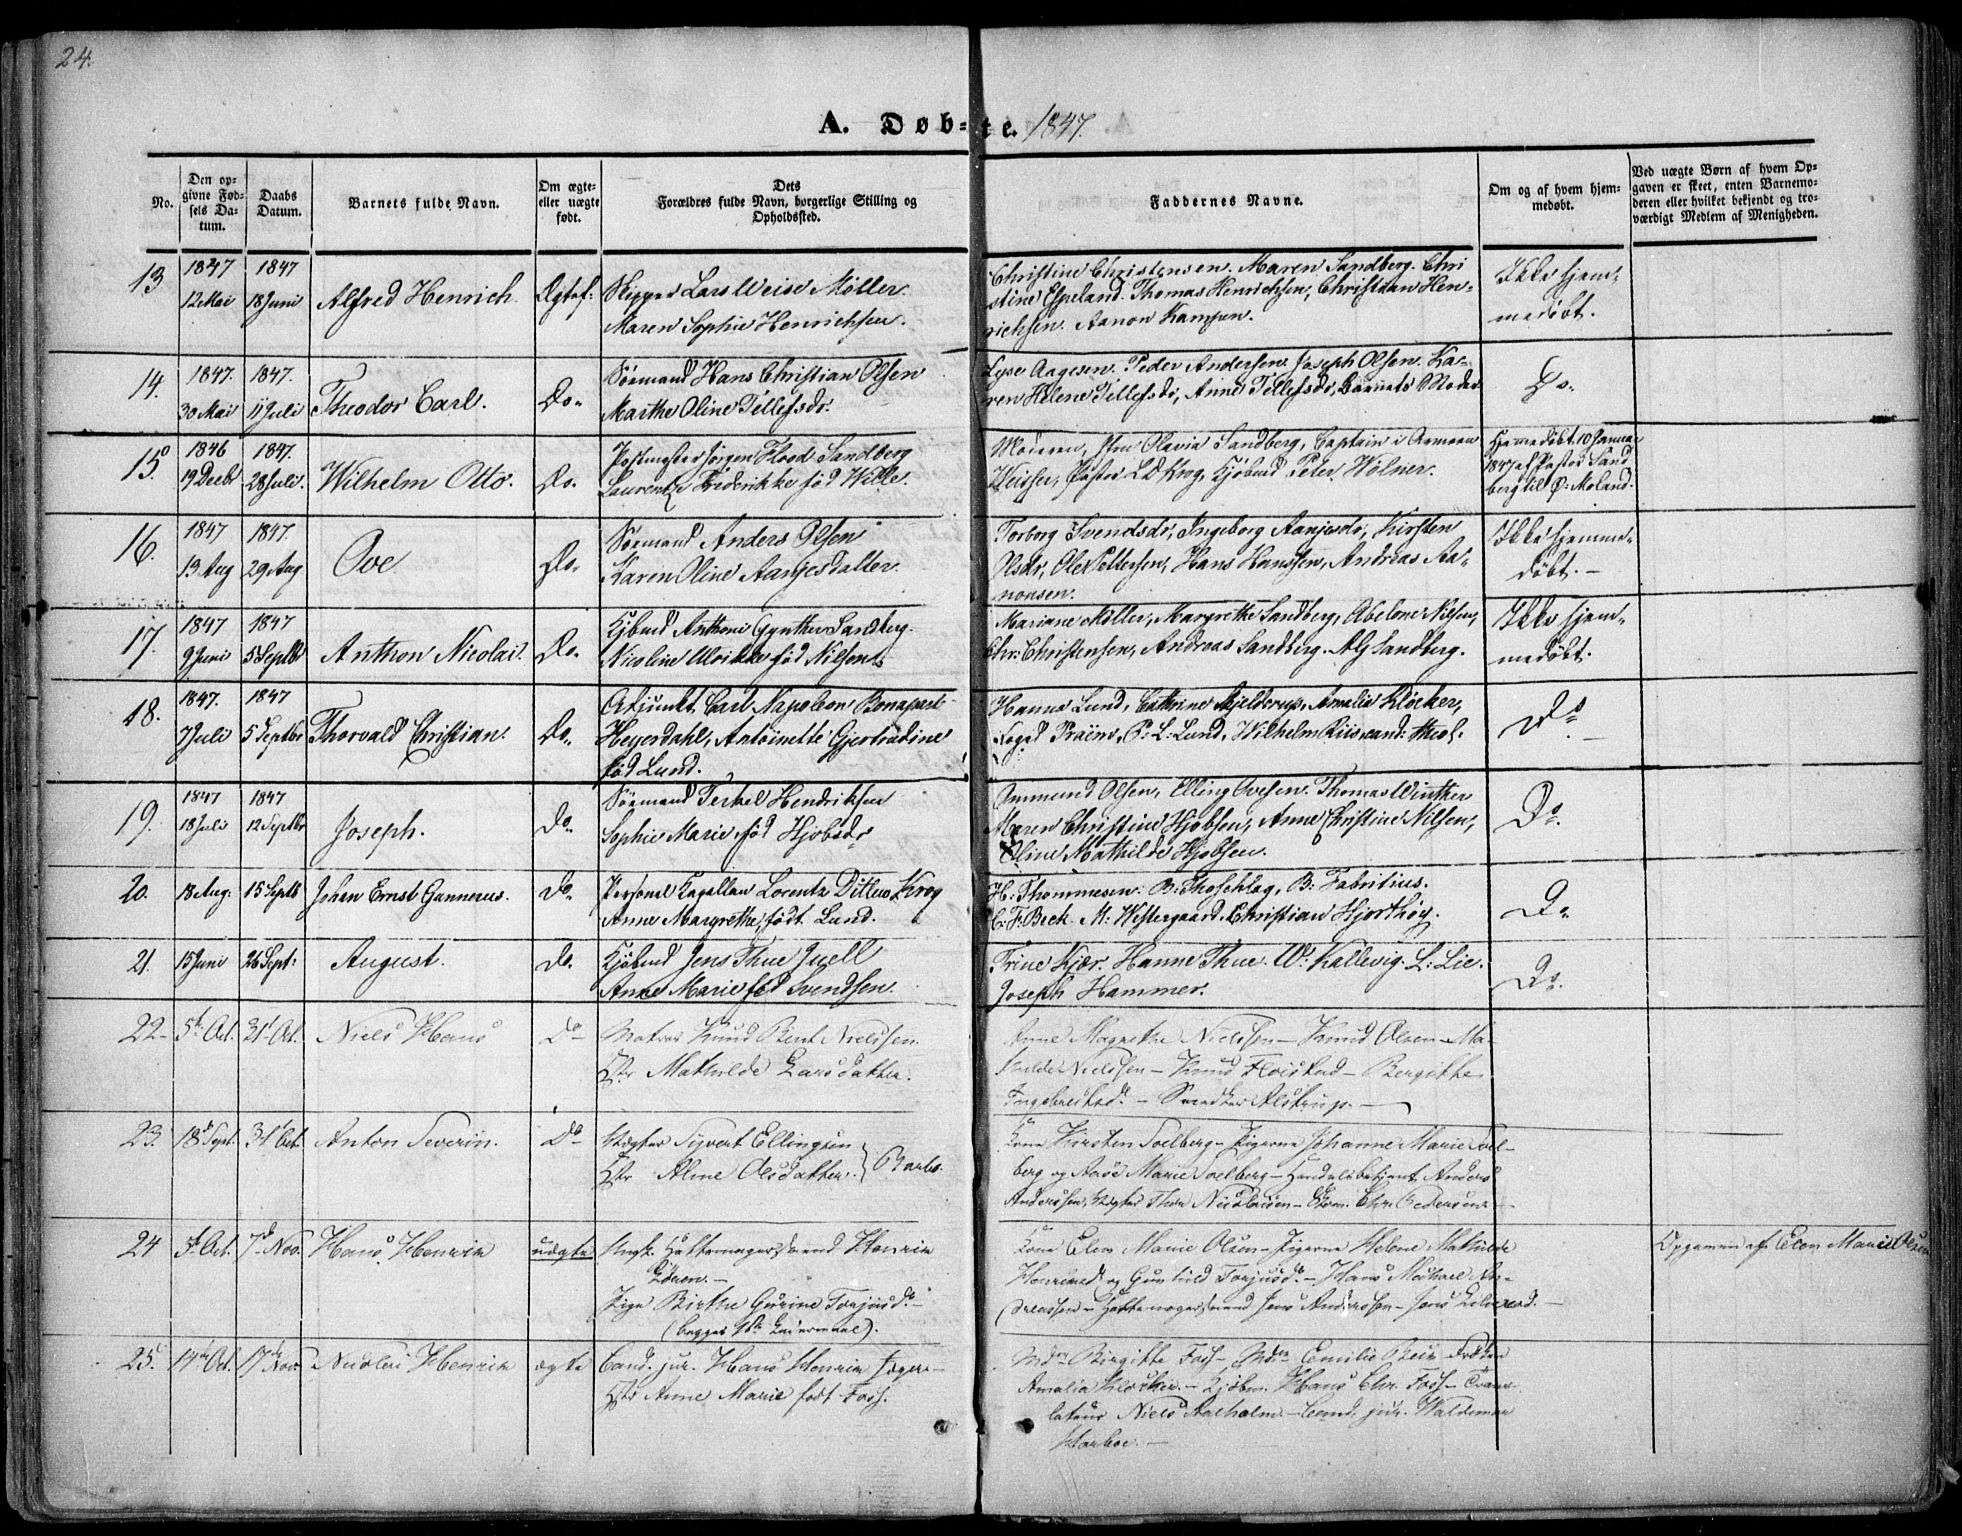 24.
A. Døbte. 1847.
No.
Den opgivne Fødsels Datum.
Daabs Datum.
Barnets fulde Navn.
Om ægte- eller uægte født.
Dets Forældres fulde Navn, borgerlige Stilling og Opholdsted.
Faddernes Navne.
Om og af hvem hjemmedøbt.
Ved uægte Børn af hvem Opgaven er skeet, enten Barnemoderen eller hvilket bekjendt og troværdigt Medlem af Menigheden.
13
1847
12 Mai
1847
18 Juni
Alfred Henrich.
Ægtef:
Skipper Lars Weise Møller.
Maren Sophie Henrichsen.
Christine Christensen. Maren Sandberg. Chri
stine Espeland. Thomas Henrichsen, Christian Hen-
richsen. Aanon Kampen.
Ikke hjem-
medøbt.
14.
1847.
30 Mai
1847.
11 Juli
Theodor Carl.
Do.
Sømand Hans Christian Olsen
Marthe Oline Tellefsdr.
Lyse Aagesen. Peder Andersen. Joseph Olsen. Ka-
ren Helene Tellefsdr, Anne Tellefsdr, Barnets Moder
Do.
15.
1846
19 Decbr
1847.
28 Juli.
Wilhelm Otto.
Do.
Postmester Jørgen Flood Sandberg
Laurentze Frederikke fød Wille.
Moderen, Olavia Sandberg, Captain i Armeen
Weisser, Pastor L D Krog, Kjøbmd Peter Wolner.
Hjemedøbt 10 Januar
1847 af Pastor Sand
berg til Ø: Moland.
16.
1847
13 Aug
1847.
29 Aug
Ove
Do.
Sømand Anders Olsen
Karen Oline Aanjesdatter.
Torborg Svendsdr, Ingeborg Aanjesdr, Kirsten
Olsdr, Ole Pettersen, Hans Hansen, Andreas Aa-
nonsen.
Ikke hjemme-
døbt. -
17.
1847
9 Juni
1847
5 Septbr
Anthon Nicolai.
Do.
Kjøbmd Anthoni Gynther Sandberg.
Nicoline Ulrikke fød Nilsen.
Mariane Møller, Margrethe Sandberg, Abelone Nilsen,
Chr: Christensen, Andreas Sandberg. A G Sandberg.
Ikke hjem-
medøbt.
18.
1847.
7 Juli
1847
5 Septbr
Thorvald Christian.
Do.
Adjunkt Carl Napoleon Bonaparte
Heyerdahl, Antoinette Gjertrudine
fød Lund.
Hanna Lund, Cathrine Kjelderup, Amalie Kløcker,
Foged Præm, P: L: Lund, Wilhelm Riis, cand: theol.
Do
19.
1847
18 Juli
1847
12 Septbr
Joseph.
Do.
Sømand Terkel Hendriksen
Sophie Marie fød Hjobsdr
Ommund Olsen, Elling Ovesen. Thomas Winther
Maren Christine Hjobsen, Anne Christine Nilsen,
Oline Mathilde Hjobsen.
Do.
20.
18 Aug.
15 Septb
Johan Ernst Gunnerus.
Do.
Personel Kapellan Lorentz Ditlev Krog
Anne Margrethe, født Lund.
H: Thommesen. B: Thoschlag, B: Fabritius.
C. F. Beck. M: Westergaard. Christian Hjorthøy.
Do
21.
15 Juni
26 Sept:
August.
Do.
Kjøbmd Jens Thue Juell
Anne Marie fød Svendsen.
Trine Kjær. Hanne Thue. W: Kallevig. L: Lie.
Joseph Hammer.
Do.
22.
5te Oct.
31 Oct.
Niels Hans
Do
Matros Knud Bent Nielssen.
Hstr Mathilde Larsdatter.
Anne Magrethe Nielssen - Knud Olsen - Ma-
thilde Nielssen - Knud Fløistad - Bergitte
Ingebretsd. - Snedker Alstrup. -
23.
18 Sept.
31 Oct.
Anton Severin.
Do
Vægter Syvert Ellingsen
Hstr Aline Olsdatter. } Barbo.
Kone Kirsten Soelberg - Pigerne Johanne Marie Soel-
berg og Aase Marie Soelberg - Handelsbetjent Anders
Anderssen, Vægter Thor Nicolaisen - Chr. Pedersen -
24
3 Oct.
7d Nov.
Hans Henrik
uægte
Ungk. Hattemagersvend Henrik
Edsen. -
Pige Birthe Gurine Torjusd. -
(begges 1ste Leiermaal).
Kone Elen Marie Olsen - Pigerne Helene Mathilde
og Gunhild Torjusd. - Hans Michael An-
dreassen - Hattemagersvend Jens Anderssen - Jens -
Opgaven af Elen Marie Olsen
25.
14de Oct.
17de Nov.
Nicolai Henrik
ægte
Cand. jur. Hans Henrik Jæger -
Hstr Anne Marie født Foss.
Mdm Birgitte Foss - Mdm Emilie Frøken
Amalia Kløcker - Kjøbm. Hans Chr. Foss - Trans-
lateur Niels Aalholm - Cand. jur. Waldemar
Harboe. -